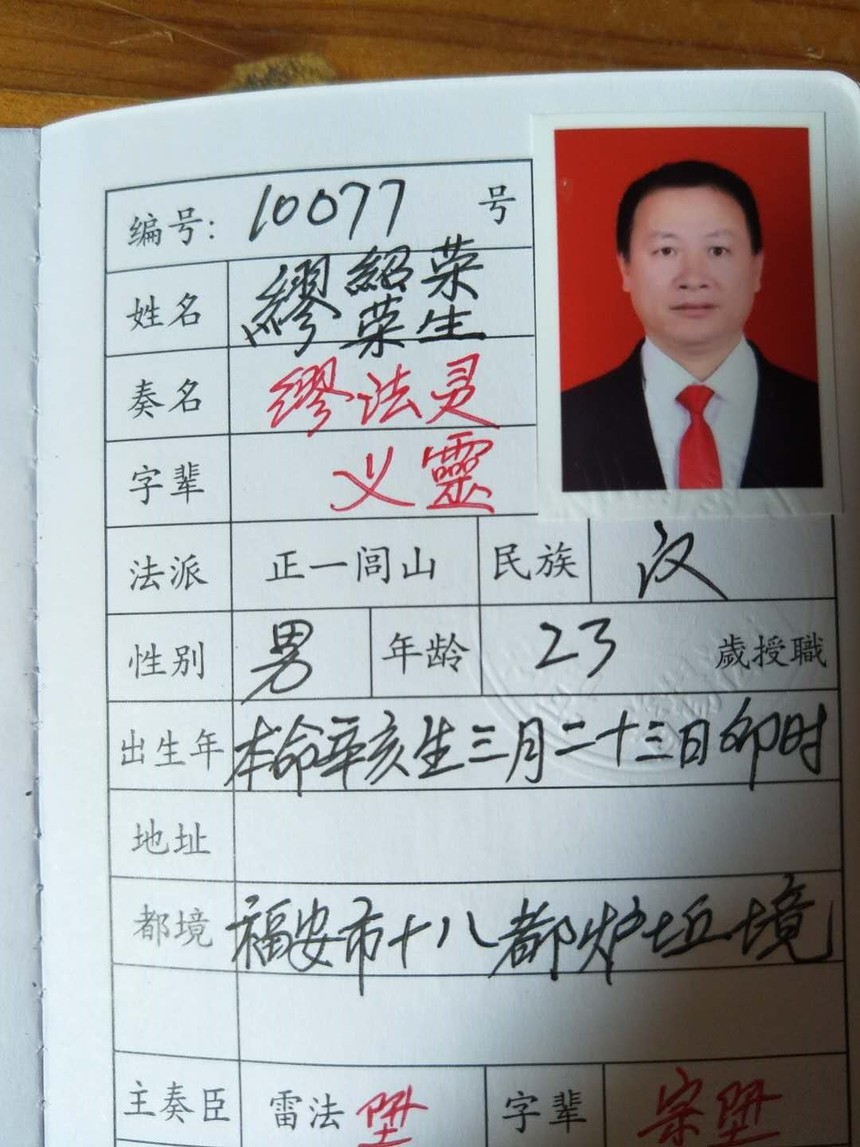 编号: 10077 号
姓名 繆紹荣
荣生
奏名 缪法灵
字辈 义靈
法派 正一闾山 民族 汉
性别 男 年龄 23 歲授職
出生年 本命辛亥生三月二十三日卯时
地址
都境 福安市十八都炉坵境
主奏臣 雷法 字辈